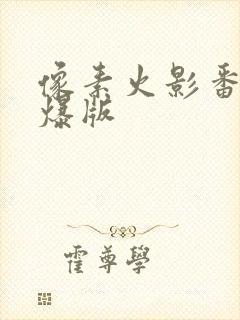 像素火影番
爆版
霍尊學